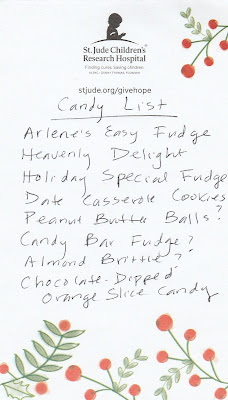 St. Jude Children's
Research Hospital
Finding cures. Saving children.
stjude.org/givehope
Candy List
Arlene's Easy Fudge
Heavenly Delight
Holiday Special Fudge
Date Casserole Cookies
Peanut Butter Balls?
Candy Bar Fudge?
Almond Brittle?
Chocolate-Dipped
Orange Slice Candy